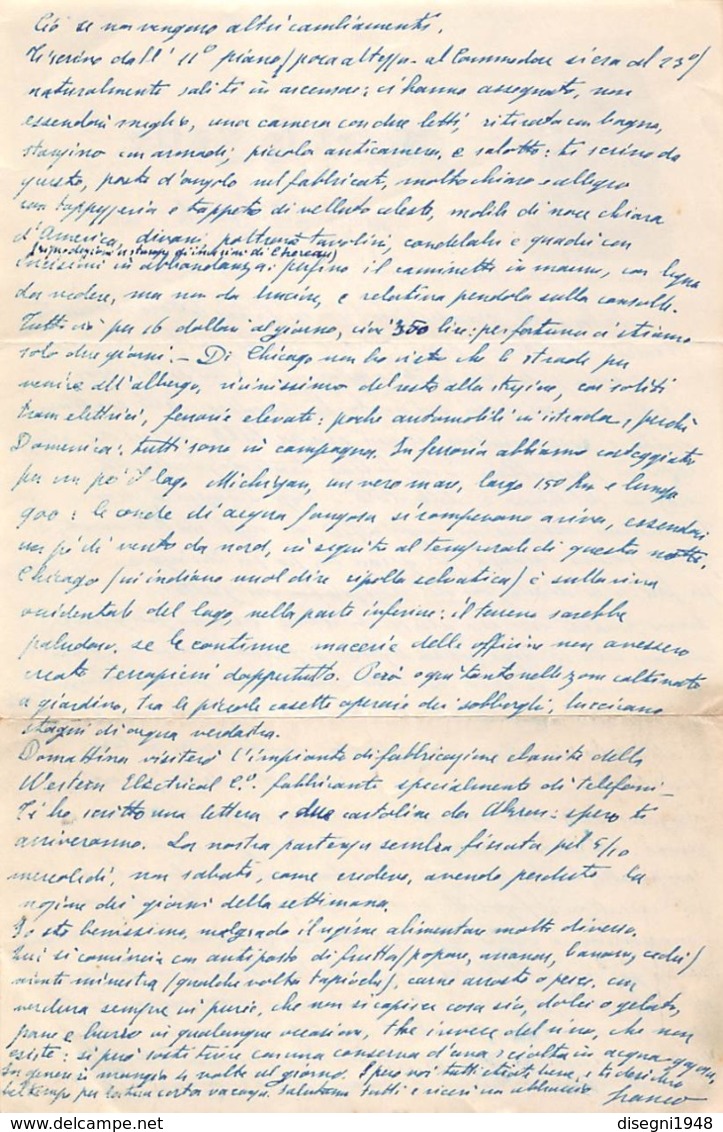 Ciò se non vengono altri cambiamenti.
Ti scrivo dall' 11° piano (poca altezza - al Commodore si era al 23°)
naturalmente saliti in ascensore: ci hanno assegnato, non
essendovi meglio, una camera con due letti, ritirata con bagno,
stanzino con armadi, piccola anticamera, e salotto: ti scrivo da
questo, posto d'angolo nel fabbricato, molto chiaro e allegro
con tappezzeria e tappeto di velluto celeste, mobili di noce chiara
d'America, divani, poltrone, tavolini, candelabri e quadri con
(riproduzioni a stampa di incisioni di
in abbondanza: perfino il caminetto in marmo, con legna
da vedere, ma non da bruciare, e relativa pendola sulla consolle.
Tutto ciò per 16 dollari al giorno, cioè 350 lire: per fortuna ci stiamo
solo due giorni. - Di Chicago non ho visto che le strade per
venire all'albergo, vicinissimo del resto alla stazione, coi soliti
tram elettrici, ferrovie elevate: poche automobili in istrada, perché
Domenica: tutti sono in campagna. In ferrovia abbiamo costeggiato
per un po' il lago Michigan, un vero mare, largo 150 km e lungo
900: le onde di acqua fangosa si rompevano a riva, essendovi
un po' di vento da nord, in seguito al temporale di questa notte.
Chicago (in indiano vuol dire cipolla selvatica) è sulla riva
occidentale del lago, nella parte inferiore: il terreno sarebbe
paludoso, se le continue macerie delle officine non avessero
creato terrapieni dappertutto. Però ogni tanto nelle zone coltivate
a giardino, tra le piccole casette operaie dei sobborghi, luccicano
stagni di acqua verdastra.
Domattina visiterò l'impianto di fabbricazione ebanite della
Western Electrical C.° fabbricante specialmente di telefoni -
Ti ho scritto una lettera e due cartoline da Akron: spero ti
arriveranno. La nostra partenza sembra fissata pel 5/10
mercoledì, non sabato, come credevo, avendo perduto la
nozione dei giorni della settimana.
Io sto benissimo, malgrado il regime alimentare molto diverso.
Qui si comincia con antipasto di frutta (popone, ananas, banana, cedri)
minestra (qualche volta tapioca), carne arrosto o pesce, con
verdura sempre in purée, che non si capisce cosa sia, dolci o gelato,
pane e burro in qualunque occasione, thè invece del vino, che non
esiste: si può sostituire con una conserva d'uva sciolta in acqua
In genere si mangia 2 volte al giorno. Spero voi tutti stiate bene, e ti desidero
bel tempo per costa corta vacanza. Salutami tutti e ricevi un abbraccio
Franco
disegni1948